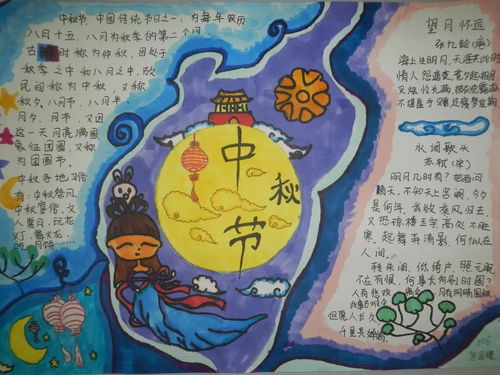 中秋节,中国传统节日之一,为每年农历
八月十五,八月为秋季的第二个
古时称为仲秋,因处于
秋季之中和八月之中,故
民间称为中秋,又称
秋夕、八月节、八月半、
月夕、月节,又因
这一天月亮满圆
象征团圆,又称
为团圆节。
中秋各地习俗
有:中秋祭月、
中秋宴俗、文
人赏月、玩花
灯、舞火龙、
吃月饼……
中秋节
望月怀远
张九龄(唐)
海上生明月,天涯共此时
情人怨遥夜,竟夕起相思
灭烛怜光满,披衣觉露滋
不堪盈手赠,还寝梦佳期
水调歌头
苏轼(宋)
明月几时有?把酒问
青天。不知天上宫阙,今夕
是何年。我欲乘风归去,
又恐琼楼玉宇,高处不胜
寒,起舞弄清影,何似在
人间。
转朱阁,低绮户,照无眠
不应有恨,何事长向别时圆?
人有悲欢离合,月有阴晴圆缺
此事古难全
但愿人长久
千里共婵娟。